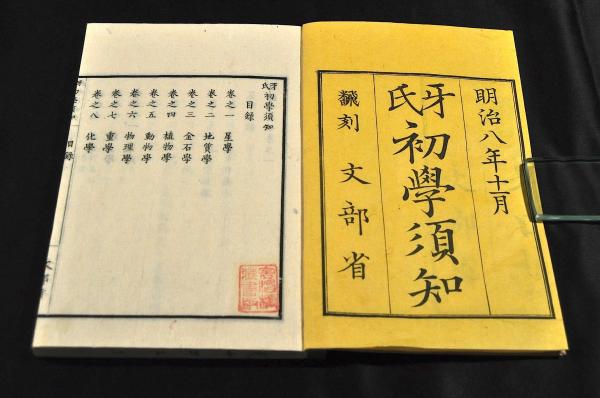 明治八年十一月
牙氏初學須知
飜刻 文部省
牙氏初學須知
目録
卷之一 星學
卷之二 地質學
卷之三 金石學
卷之四 植物學
卷之五 動物學
卷之六 物理學
卷之七 重學
卷之八 化學
目録